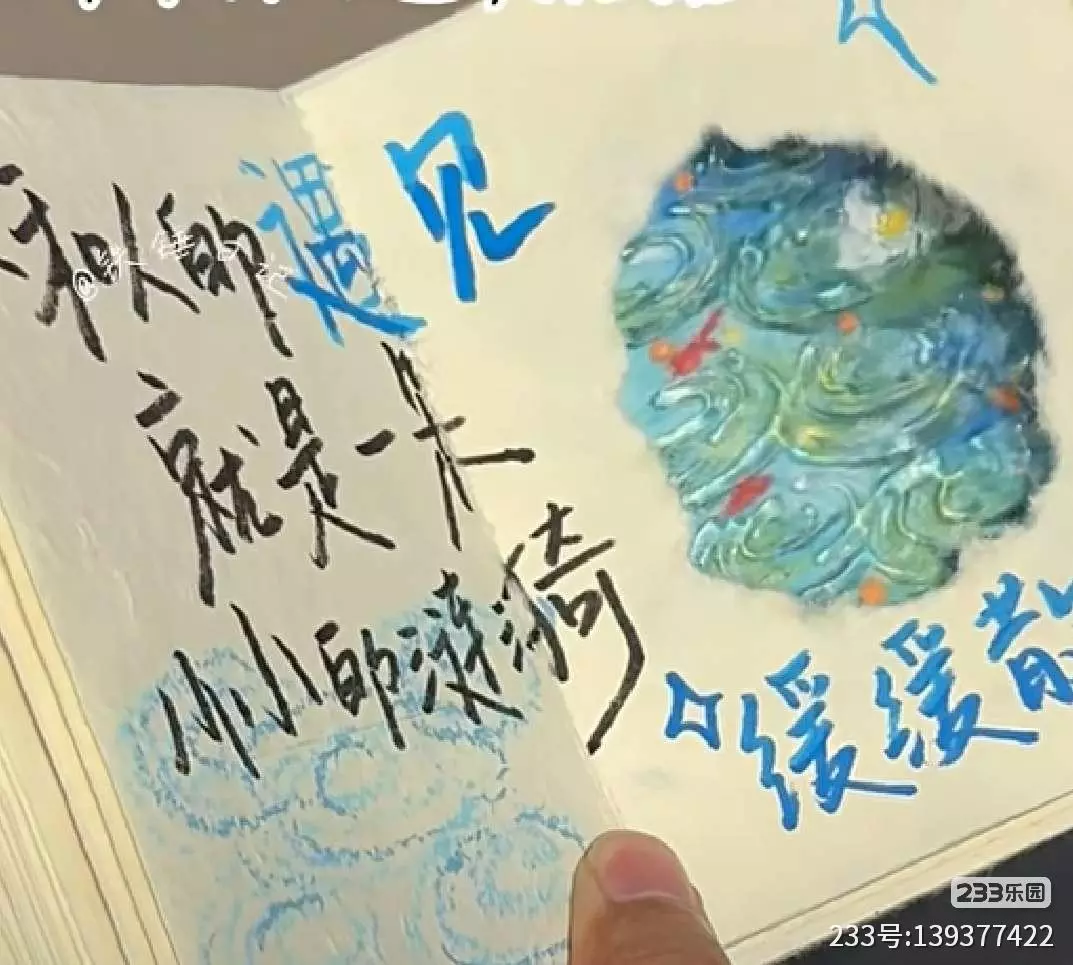 的遇见
就是一朵
小小的涟漪
缓缓散
233乐园
233号:139377422